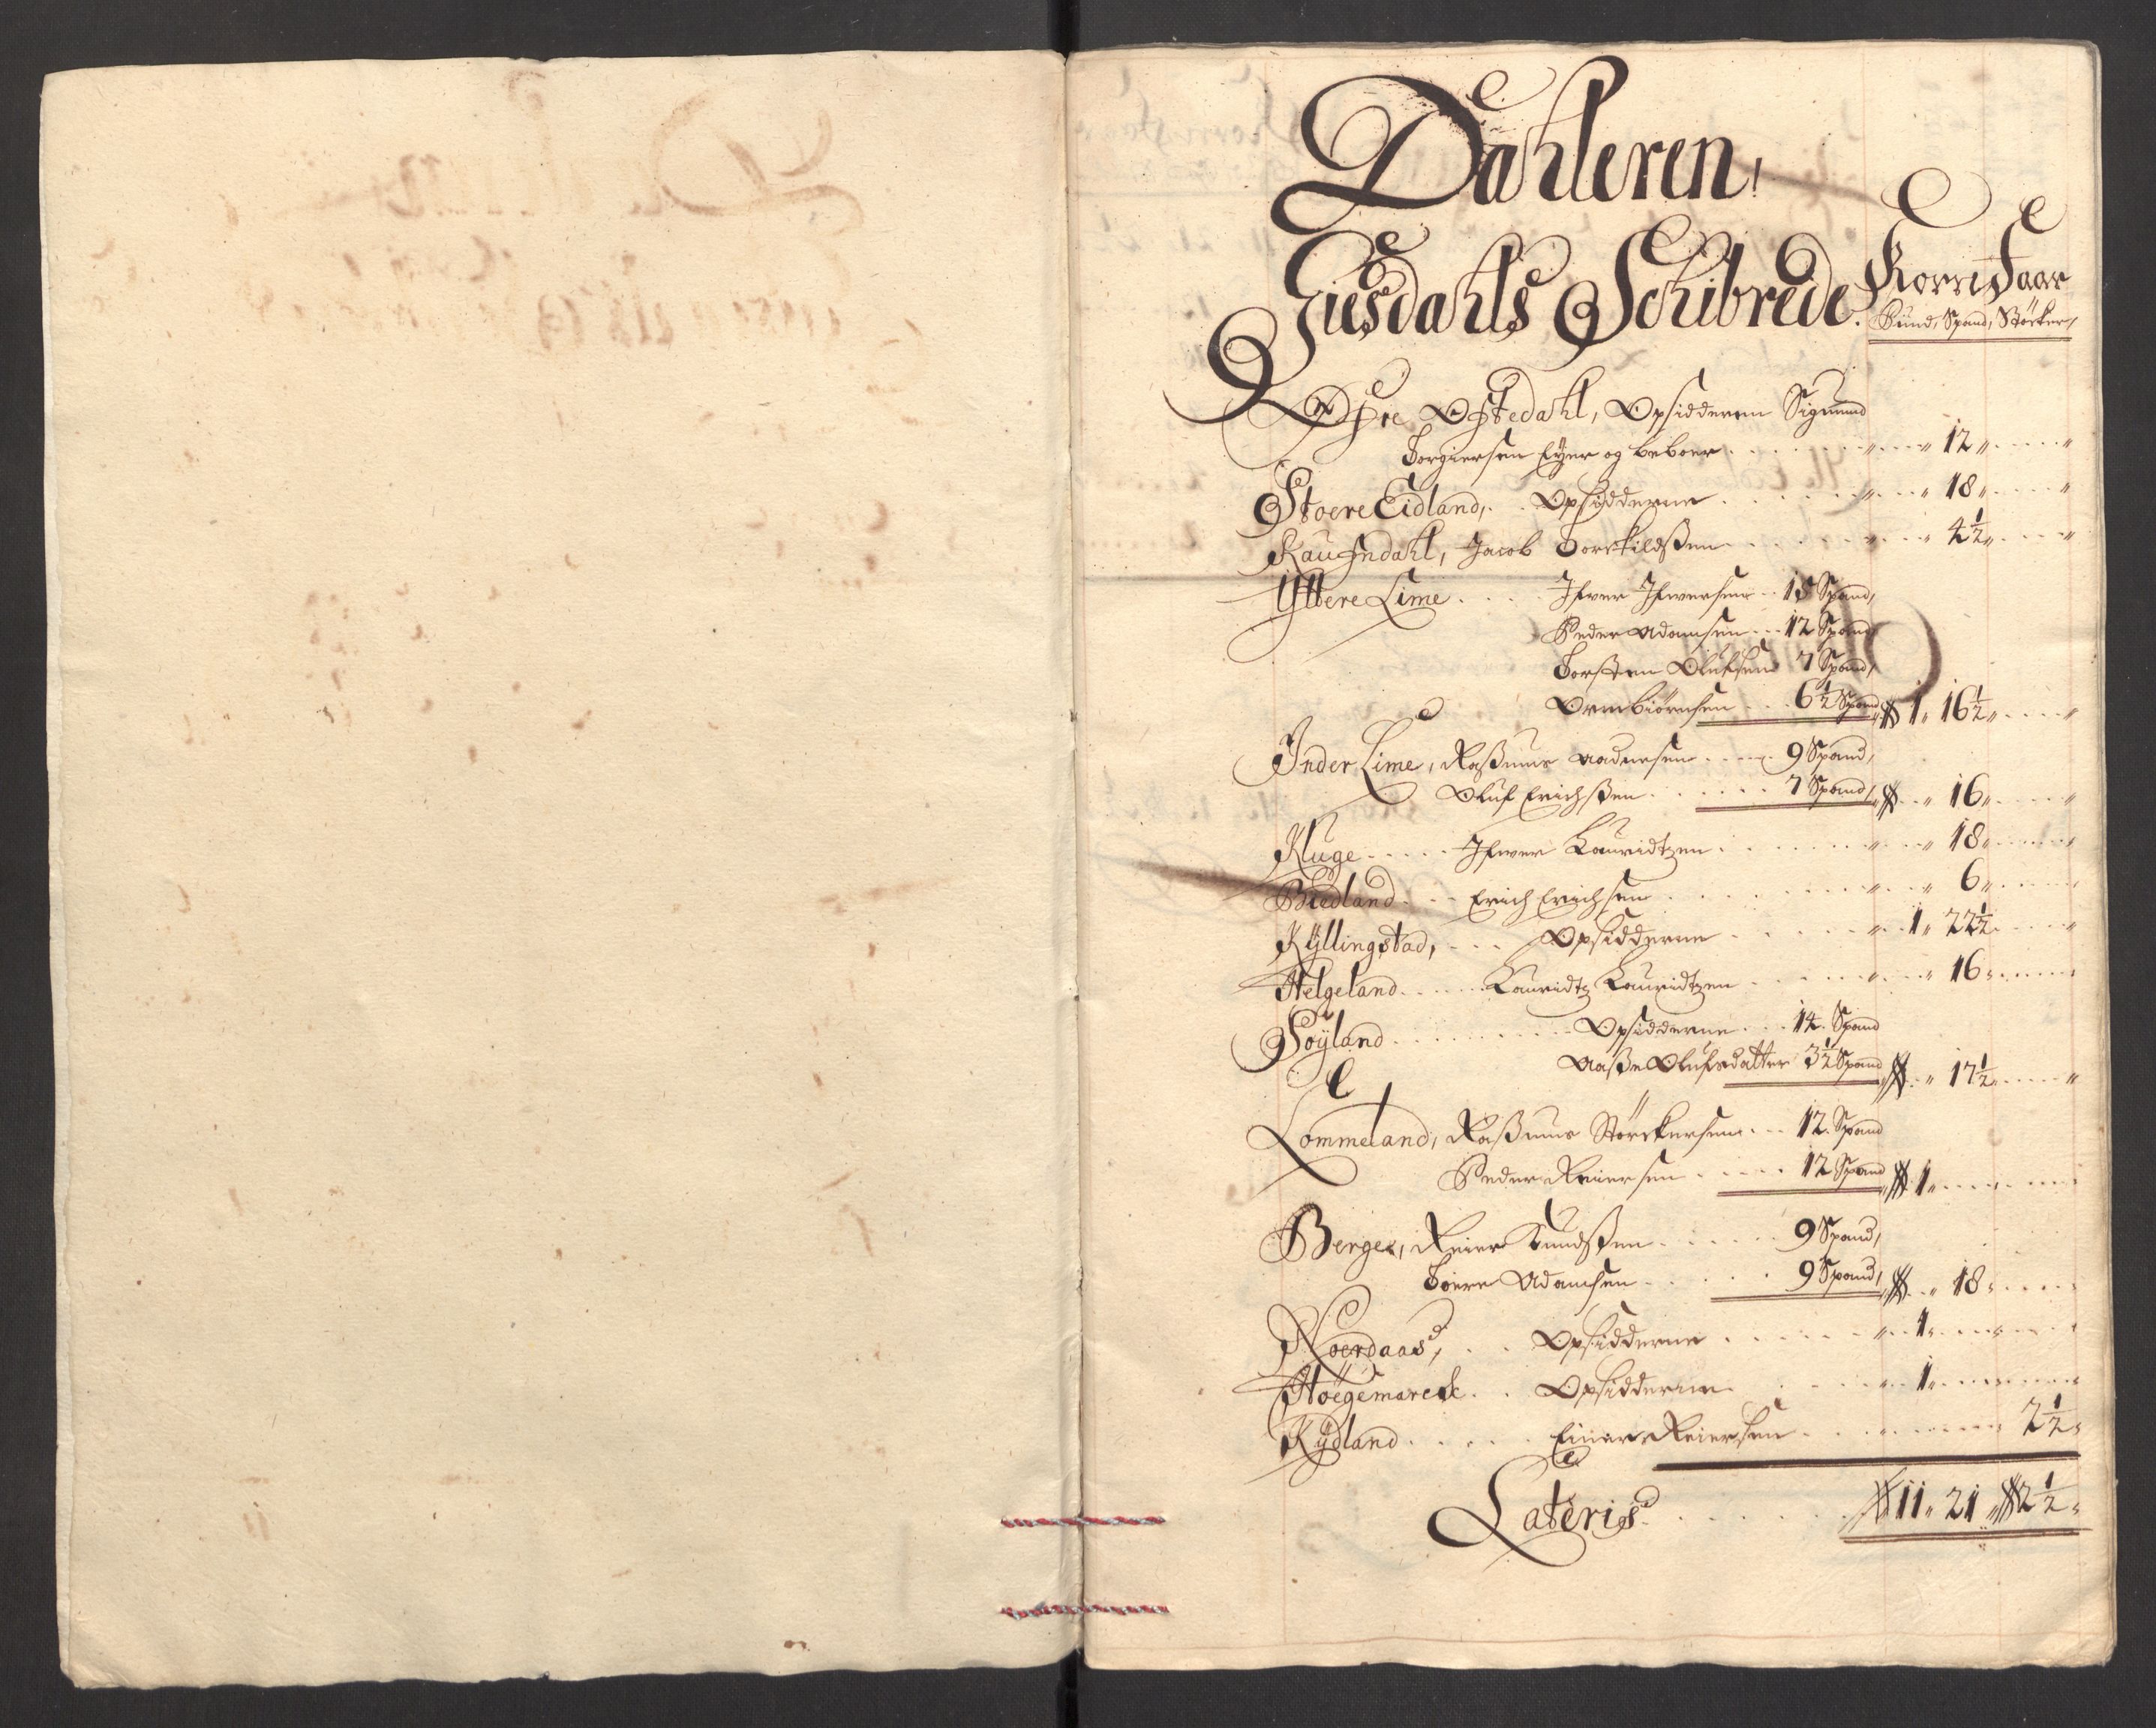 Dahleren,
Giesdahls Schibrede. Korn Faar
Pund, Spand, Støcker,
Øfre Øftedahl, Opsidderen Sigmund
Torgiersen Eyer og beboer . . . . . . „ . . . „ 12 „ . . . . „
Stoere Eidland, . . Opsidderne . . . . . „ . . . „ 18 „ . . . . „
Raufndahl, Jacob Torkildßen . . . . . „ . . . „ 4½ „ . . . . „
Ÿttere Lime . . . . Ifver Ifwersen . . 18 Spand,
Peder Adamsen . . . 12 Spand,
Torsten Olufsen 7 Spand,
Ormbiørnsen . . . 6½ Spand „ 1 „ 16½ „ . . . . „
Inder Lime, Raßmus Aadnesen . . . . . 9 Spand,
Oluf Erichßen . . . . . . 7 Spand, „ . . „ 16 „ . . . . „
Kluge . . . . . Ifwer Lauridtzen . . . . . . . „ . . . „ 18 „ . . . . „
Biedland . . . Erich Erichsen . . . . . . . . . „ . . . „ 6 „ . . . .
Kÿllingstad, . . . . Opsidderne . . . . . „ . . 1 „ 22½ . . . . „
Helgeland . . . . . Lauridtz Lauridtzen . . . . . „ . . . „ 16 „ . . . .
Søÿland . . . . . . . . . . . Opsidderne . . . 14 Spand
Aaße Olufsdatter 3½ Spand „ . . „ 17½ „ . . . . „
Lommeland, Raßmus Størckersen . . . 12 Spand
Peder Reiersen . . . . . 12 Spand „ 1 „ . . . . . . .
Berge, Reier Knudßen . . . . . . 9 Spand,
Toere Adamsen . . . . . . 9 Spand, „ . . „ 18 „ . . . .
Noerdaas, . . . Opsidderne . . . . . . „ . . 1 „ . . . . . . .
Høegemarck . . Opsidderne . . . . . . „ . . 1 „ . . . . . . .
Kÿdland . . . . . . Einar Reiersen . . . . „ . . . . . . . 2½ „
Lateris . . . . . . . 11 „ 21 „ 2½ „